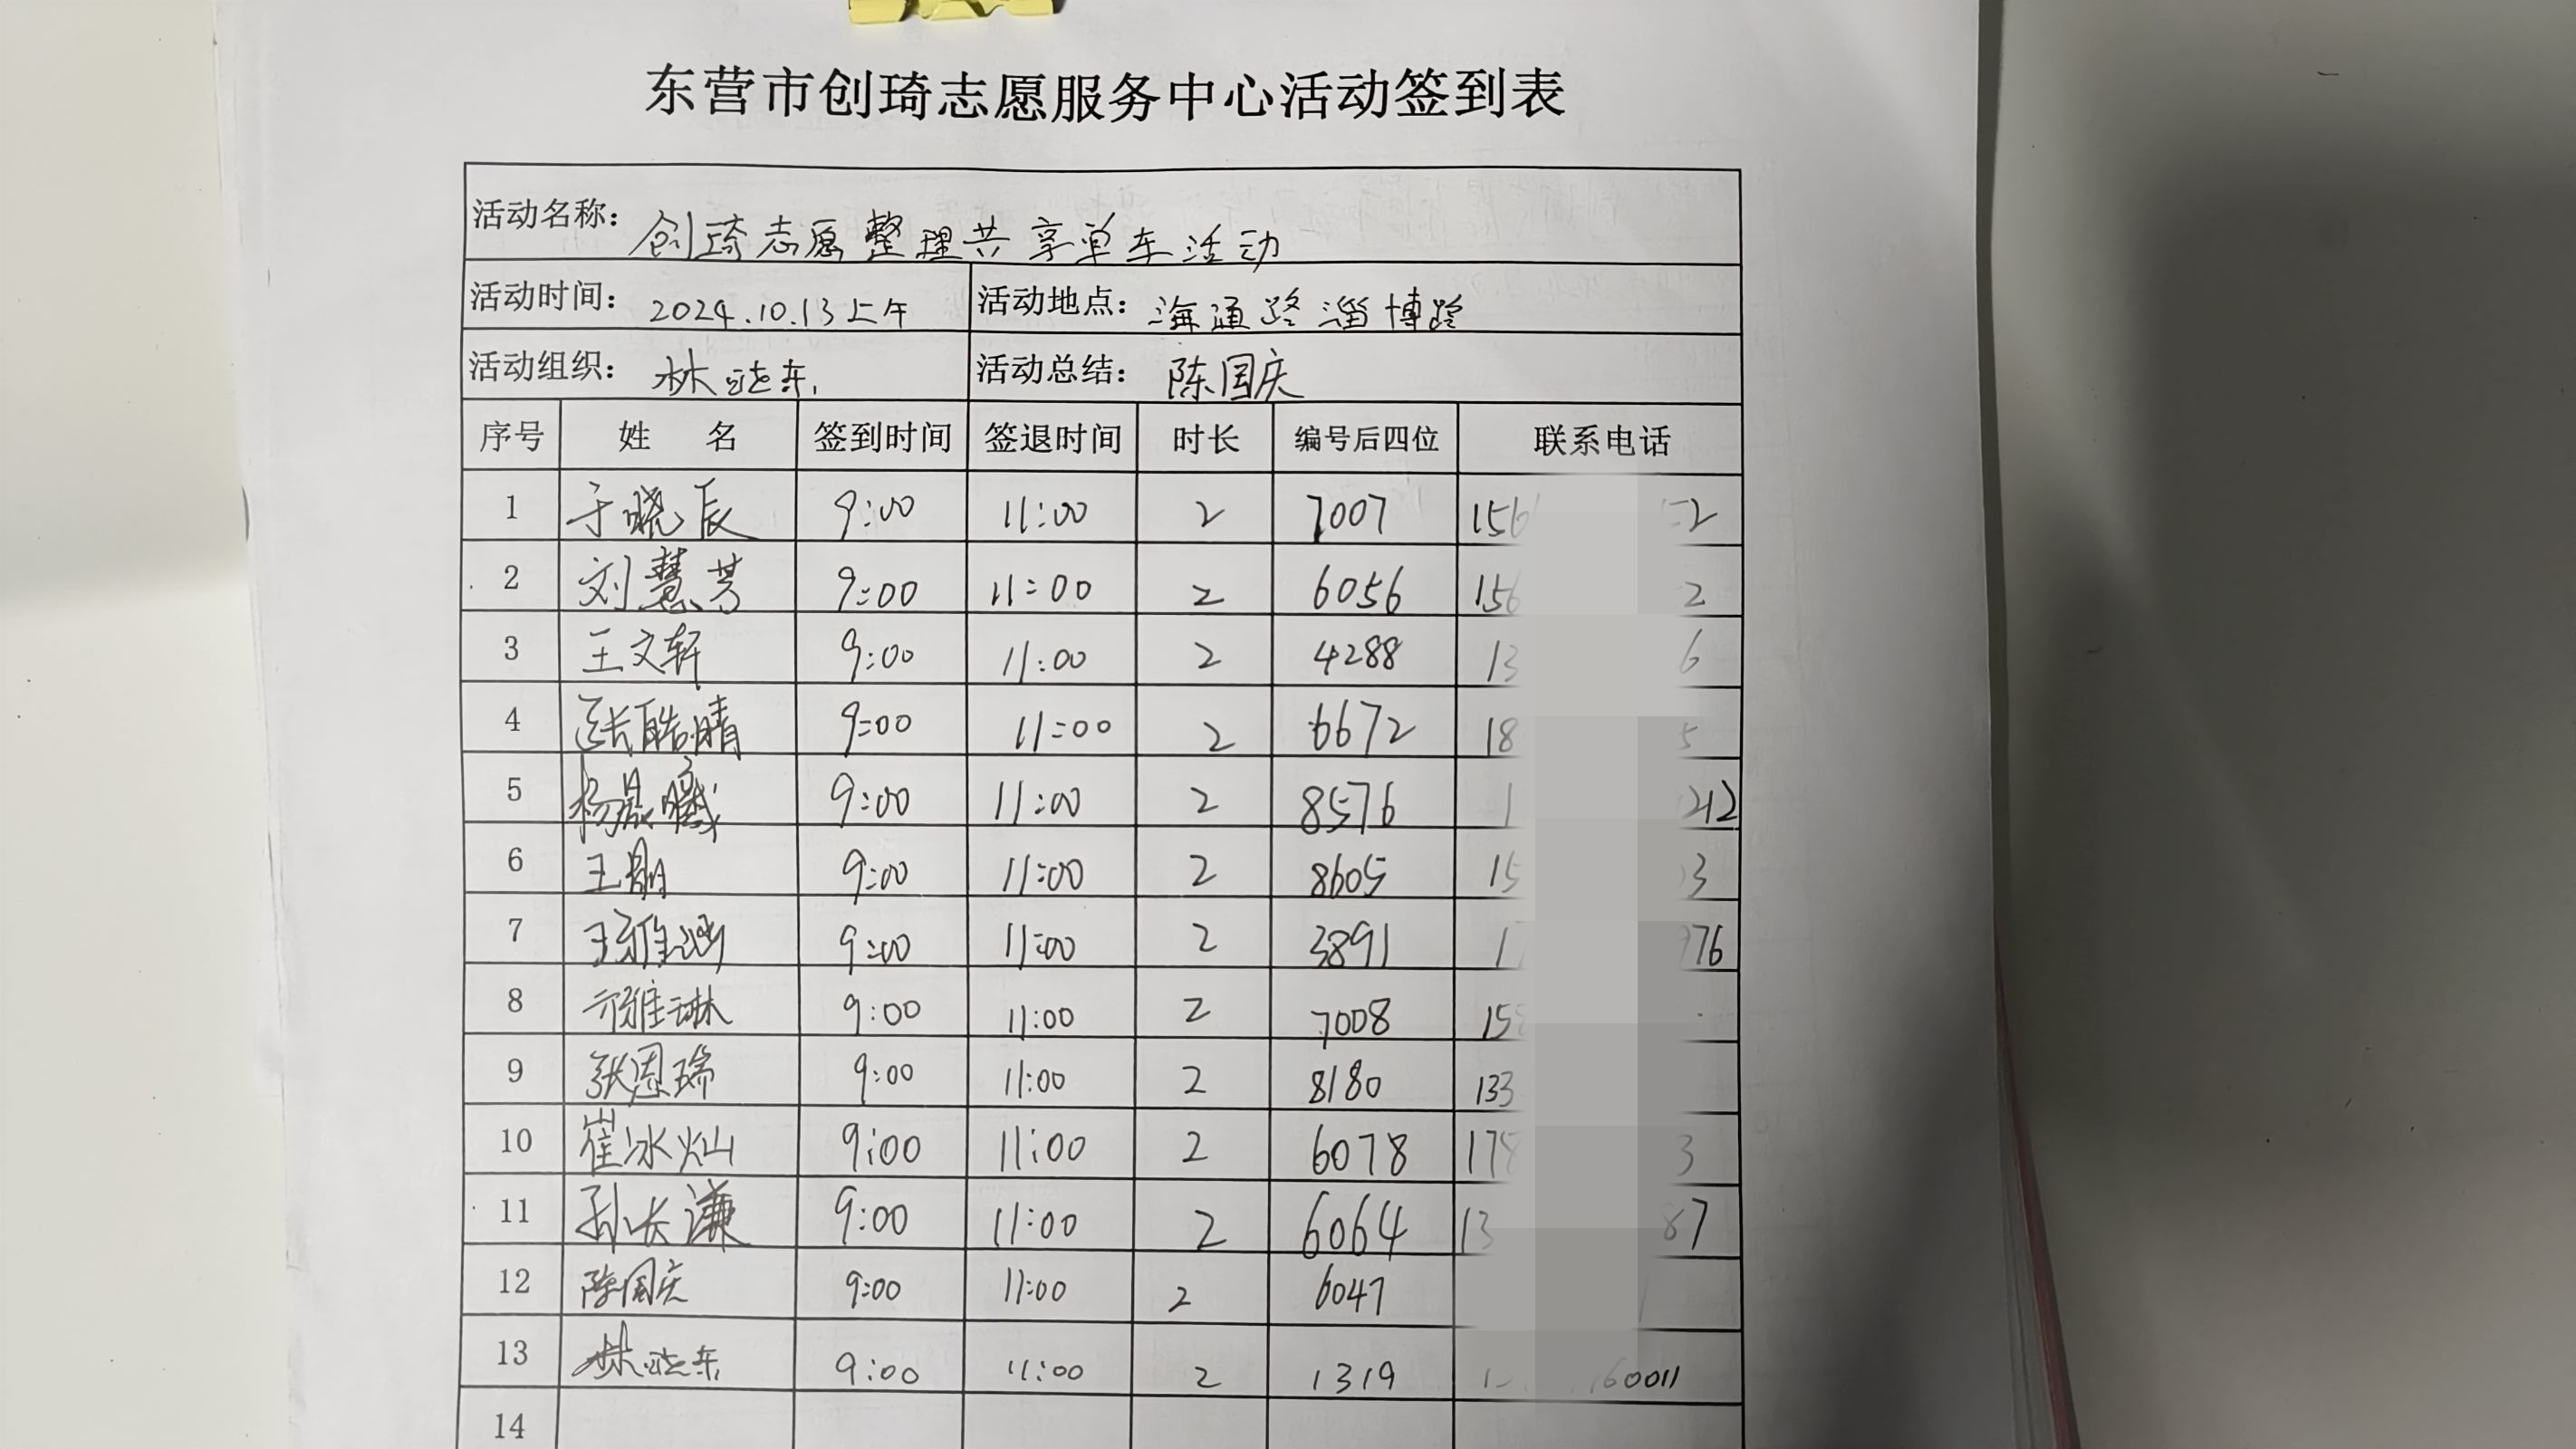 东营市创琦志愿服务中心活动签到表
活动名称：创琦志愿整理共享单车活动
活动时间：2024.10.13上午 活动地点：海通路淄博路
活动组织：林晓东 活动总结：陈国庆
序号 姓 名 签到时间 签退时间 时长 编号后四位 联系电话
1 于晓辰 9:00 11:00 2 7007 156 2
2 刘慧芳 9:00 11:00 2 6056 156 2
3 王文轩 9:00 11:00 2 4288 13 6
4 张皓晴 9:00 11:00 2 6672 18 5
5 杨晨曦 9:00 11:00 2 8576 1 212
6 王 9:00 11:00 2 8605 15 3
7 王雅涵 9:00 11:00 2 3891 17 976
8 雅琳 9:00 11:00 2 7008 15
9 张恩瑞 9:00 11:00 2 8180 133
10 崔冰灿 9:00 11:00 2 6078 17 3
11 孙长谦 9:00 11:00 2 6064 13 87
12 陈国庆 9:00 11:00 2 6047
13 林晓东 9:00 11:00 2 1319 160011
14